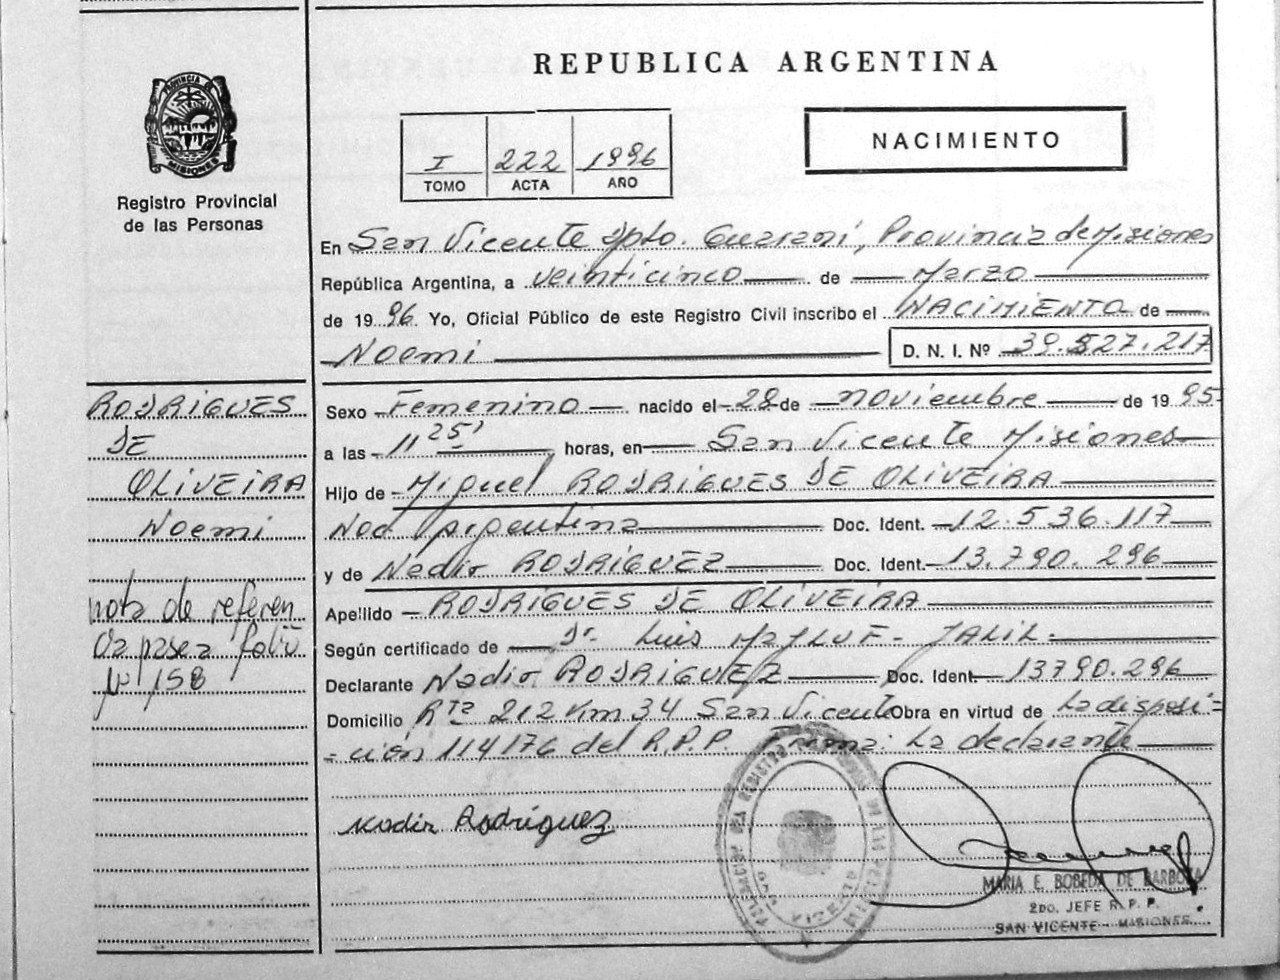 REPUBLICA ARGENTINA
PROVINCIA DE
MISIONES
Registro Provincial
de las Personas
I 222 1996
TOMO ACTA AÑO
NACIMIENTO
En San Vicente Dpto. Guaraní, Provincia de Misiones
República Argentina, a veinticinco de Marzo
de 1996 Yo, Oficial Público de este Registro Civil inscribo el NACIMIENTO de
Noemi D. N. I. Nº 39.527.217
RODRIGUES
DE
OLIVEIRA
Noemi
nota de referen
cia pasa a folio
Nº 158
Sexo Femenino nacido el 28 de noviembre de 1995
a las 11 25' horas, en San Vicente Misiones
Hijo de Miguel RODRIGUES DE OLIVEIRA
Nac Argentina Doc. Ident. 12.536.117
y de Nadir RODRIGUEZ Doc. Ident. 13.790.296
Apellido RODRIGUES DE OLIVEIRA
Según certificado de Dr. Luis JALIL
Declarante Nadir RODRIGUEZ Doc. Ident. 13790.296
Domicilio Rta 212 Km 34 San Vicente Obra en virtud de La disposi=
=ción 114176 del R.P.P. Firma: La declarante
Nadir Rodríguez
MARIA E. BOBEDA DE BARBOZA
2DO. JEFE R. P. P.
SAN VICENTE - MISIONES